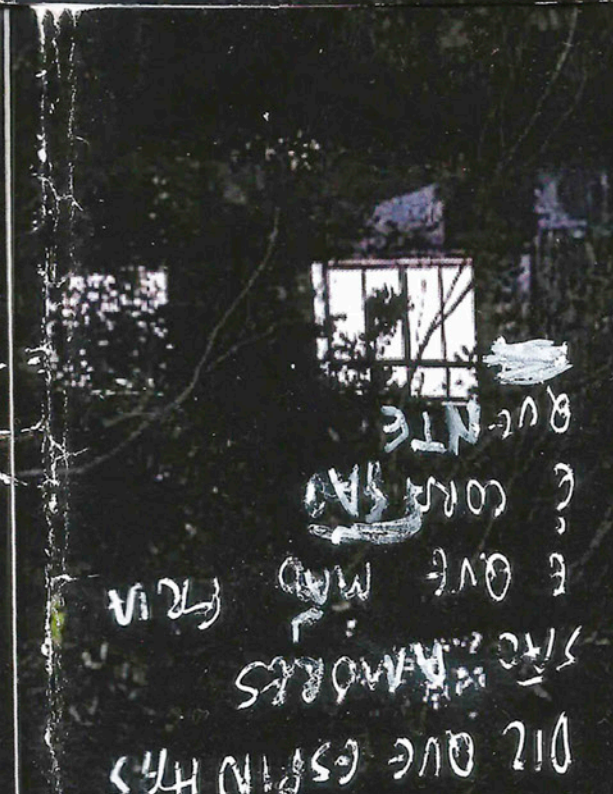 DIZ QUE ESPINHAS
SÃO AMORES
E QUE MÃO FRIA
É CORAÇÃO
QUENTE